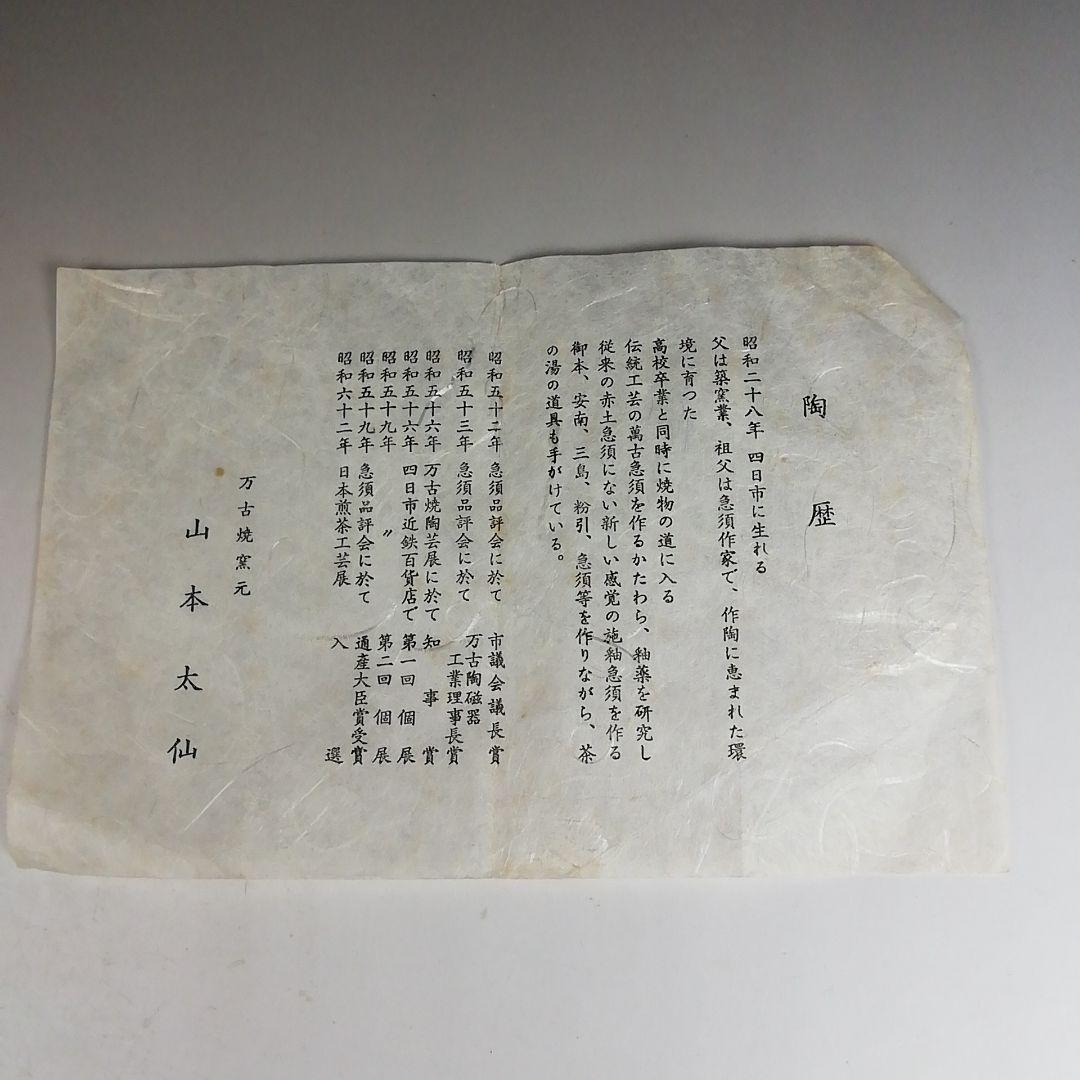 陶歴
昭和二十八年 四日市に生れる
父は築窯業、祖父は急須作家で、作陶に恵まれた環
境に育つた
高校卒業と同時に焼物の道に入る
伝統工芸の萬古急須を作るかたわら、釉薬を研究し
従来の赤土急須にない新しい感覚の施釉急須を作る
御本、安南、三島、粉引、急須等を作りながら、茶
の湯の道具も手がけている。
昭和五十二年 急須品評会に於て 市議会議長賞
昭和五十三年 急須品評会に於て 万古陶磁器工業理事長賞
昭和五十六年 万古焼陶芸展に於て 知事賞
昭和五十六年 四日市近鉄百貨店で 第一回個展
昭和五十九年 〃 第二回個展
昭和五十九年 急須品評会に於て 通産大臣賞受賞
昭和六十二年 日本煎茶工芸展 入選
万古焼窯元
山本太仙